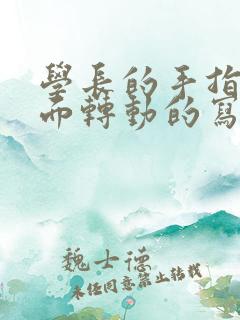 學長的手指
而轉動的寫
魏士德
未經同意禁止轉載